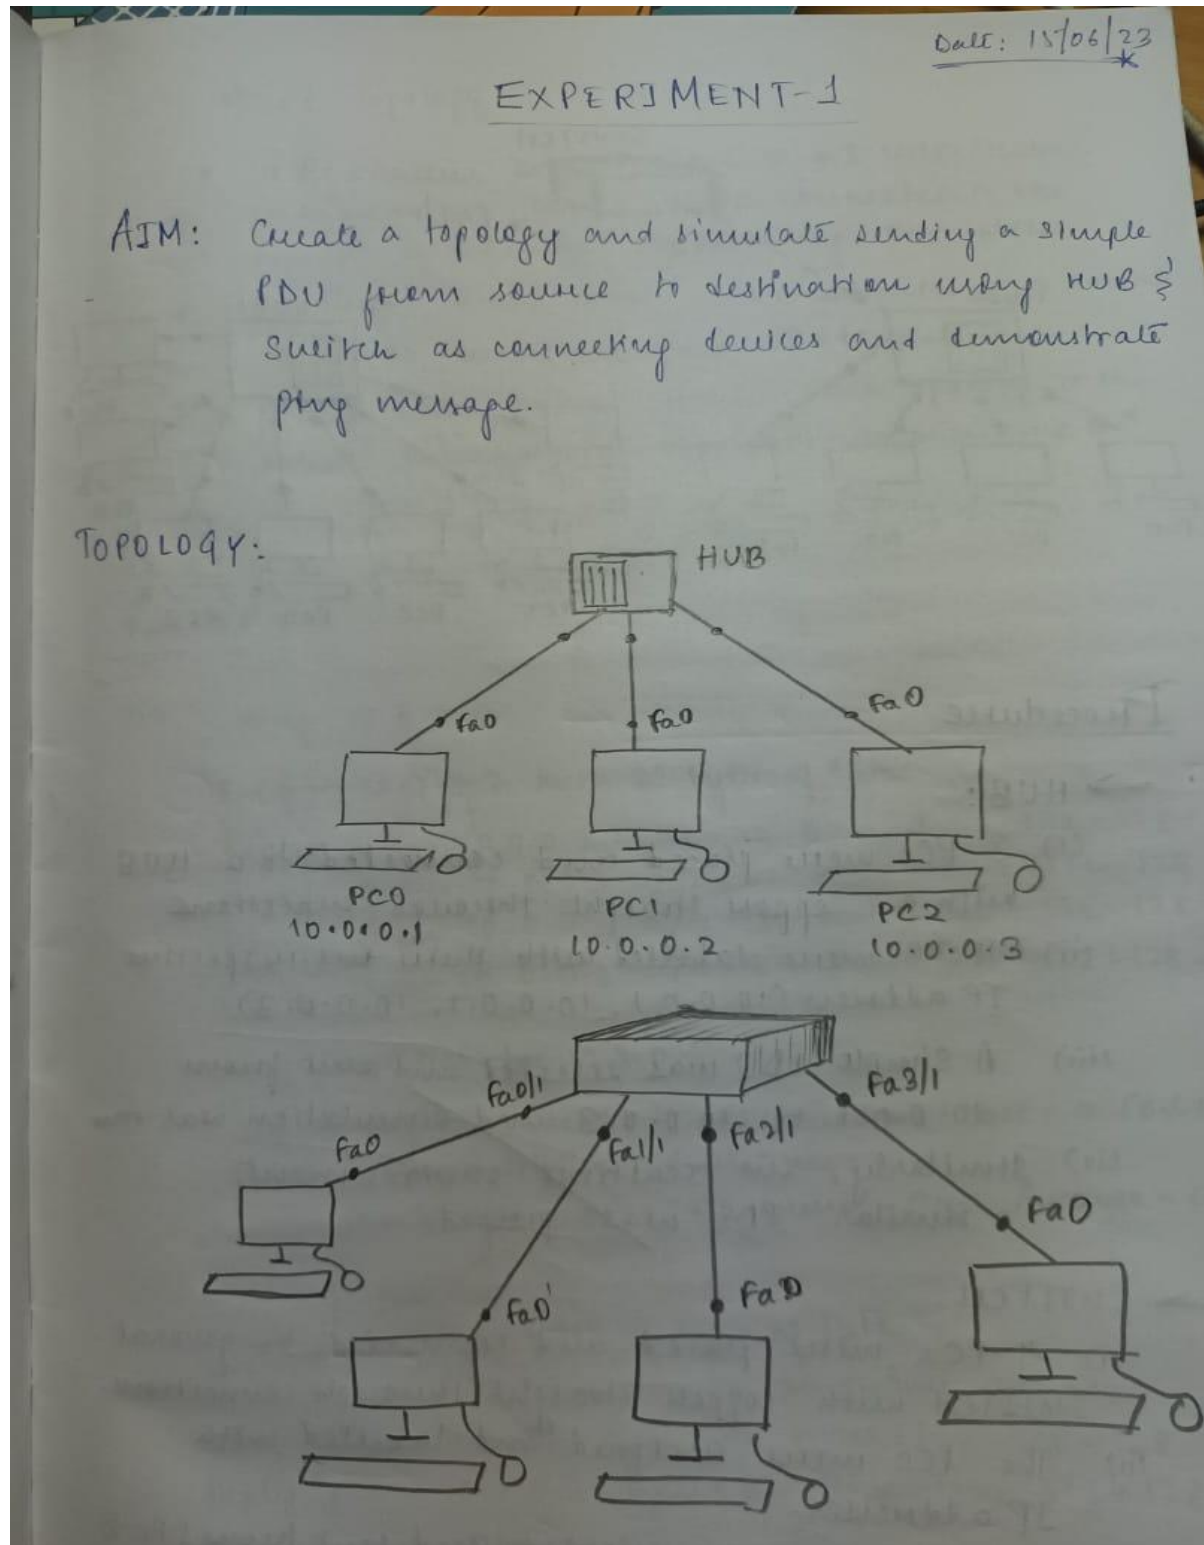 Date: 15/06/23
EXPERIMENT-1
AIM: Create a topology and simulate sending a simple
PDU from source to destination using HUB &
Switch as connecting devices and demonstrate
ping message.
TOPOLOGY:
HUB
Fa0 Fa0 Fa0
PC0 PC1 PC2
10.0.0.1 10.0.0.2 10.0.0.3
Fa0/1 Fa1/1 Fa2/1 Fa3/1
Fa0 Fa0 Fa0 Fa0